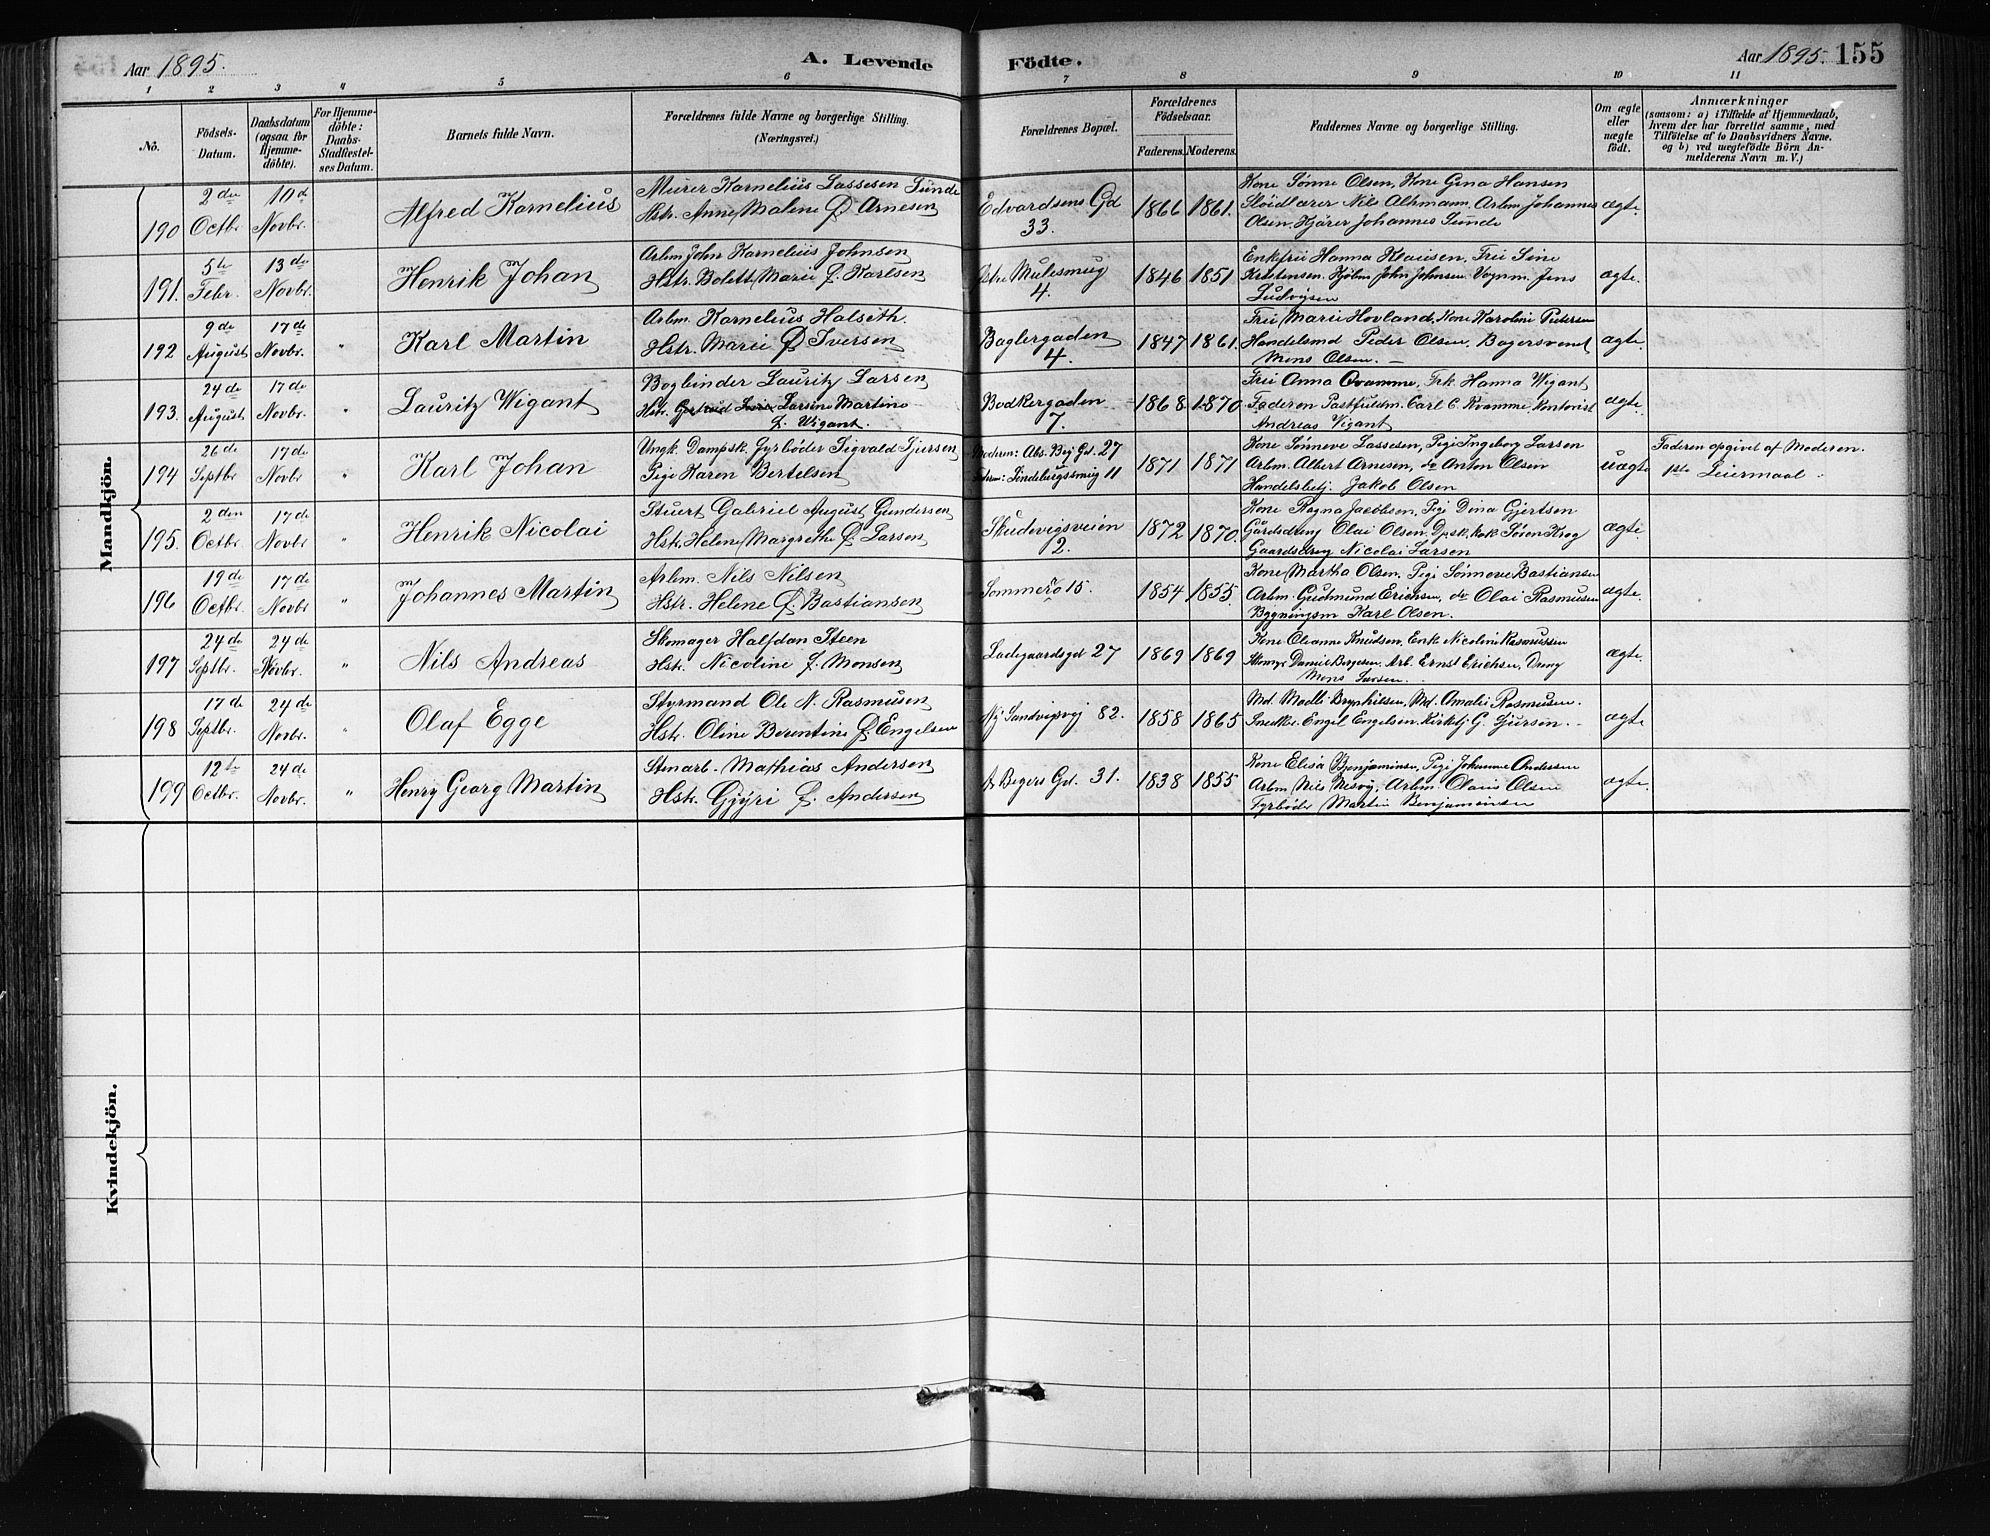 Aar 1895.
A. Levende Födte.
Aar 1895. 155
1 2 3 4 5 6 7 8 9 10 11
No.
Födsels-Datum.
Daabsdatum (ogsaa for Hjemme-döbte).
For Hjemme-döbte: Daabs-Stadfæstel-ses Datum.
Barnets fulde Navn.
Forældrenes fulde Navne og borgerlige Stilling. (Næringsvei.)
Forældrenes Bopæl.
Forældrenes Födselsaar.
Faderens. Moderens.
Faddernes Navne og borgerlige Stilling.
Om ægte eller uægte födt.
Anmærkninger
(saasom: a) i Tilfælde af Hjemmedaab,
hvem der har forrettet samme, med
Tilföielse af to Daabsvidners Navne.
og b) ved uægtefödte Börn An-
melderens Navn m. V.)
Mandkjön.
190 2den Octbr 10de Novbr. Alfred Kornelius
Murer Kornelius Lassesen Sunde
Hstr. Anne Malene f. Arnesen
Edvardsens Gd 33. 1866 1861.
Kone Sønne Olsen, Kone Gina Hansen
Sløidlærer Nils Altmann, Arbm. Johannes
Olsen, Kjører Johannes Sunde
ægte.
191. 5te Febr. 13de Novbr. Henrik Johan
Arbm John Kornelius Johnsen
Hstr. Bolette Marie f. Karlsen
Østre Mulesmug 4. 1846 1851.
Enkefru Hanna Klausen, Fru Sine
Kristensen. Kjøbm John Johnsen Vognm. Jens
Ludvigsen
ægte.
192 9de August 17de Novbr. " Karl Martin
Arbm. Kornelius Halseth.
Hstr. Marie f. Iversen
Baglergaden 4. 1847 1861.
Fru Marie Hovland, Kone Karoline Pedersen
Handelsmd Peder Olsen, Bagersvend
Mons Olsen. —
ægte.
193. 24de August 17de Novbr. " Lauritz Wigant
Bogbinder Lauritz Larsen
Hstr. Larsine Martine
f. Wigant.
Bødkergaden 7. 1868 1870
Fru Anna Kvamme, Frk. Hanna Wigant
Faderen Postfuldm. Carl C. Kvamme, Kontorist
Andreas Wigant
ægte.
194 26de Septbr 17de Novbr " Karl Johan
Ungk. Dampsk. Fyrbøder Sigvald Sjursen
Pige Karen Bertelsen
Moderen: Abs. Bej. Gd. 27
Faderen: Tindeburgssmug 11
1871 1871
Kone Sønneve Lassesen, Pige Ingeborg Larsen
Arbm. Albert Arnesen, do Anton Olsen
Handelsbetj. Jakob Olsen
uægte
Faderen opgivet af Moderen.
1ste Leiermaal.
195. 2den Octbr. 17de Novbr " Henrik Nicolai
Stuert Gabriel August Gundersen
Hstr. Helene Margrethe f. Larsen
Skudevigsveien 2. 1872 1870.
Kone Ragna Jacobsen, Pige Dina Gjertsen
Gårdsdreng Olai Olsen, Dpsk. kok Søren Krog
Gaardsdreng Nicolai Larsen
ægte
196 19de Octbr 17de Novbr " Johannes Martin
Arbm. Nils Nilsen
Hstr. Helene f. Bastiansen
Sommerø 15. 1854 1855.
Kone Martha Olsen, Pige Sønneve Bastiansen
Arbm. Gudmund Erichsen, do Olai Rasmusen
Bygningsm Karl Olsen.
ægte.
197 24de Septbr. 24de Novbr. " Nils Andreas
Skomager Halfdan Steen
Hstr. Nicoline f. Monsen
Ladegaardsgd 27 1869 1869
Kone Oleanne Knudsen, Enke Nicoline Rasmussen
Skomgr Daniel Børgesen, Arb. Ernst Erichsen, Dreng
Mons Larsen.
ægte.
198 17de Septbr. 24de Novbr. " Olaf Egge
Styrmand Ole N. Rasmusen
Hstr. Oline Berentine f. Engelsen
Ny Sandvigsvej 82. 1858 1865
Md. Madli Brynhilsen, Md. Amalie Rasmusen.
Snedker Engel Engelsen, Kirketj. G. Sjursen.
ægte
199 12te Octbr. 24de Novbr. " Henry Georg Martin
Stenarb. Mathias Andersen
Hstr. Gjyri f. Andersen
A Begers Gd. 31. 1838 1855
Kone Elisa Benjaminsen, Pige Johanne Andersen
Arbm Nils Nesøy, Arbm. Olaus Olsen
Fyrbøder Martin Benjaminsen
ægte.
Kvindekjön.